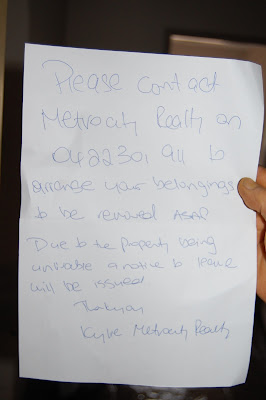 Please contact
Metrocity Realty on
0422301 911 to
arrange your belongings
to be removed ASAP
Due to the property being
unlivable a notice to leave
will be issued
Thankyou
Kylie Metrocity Realty